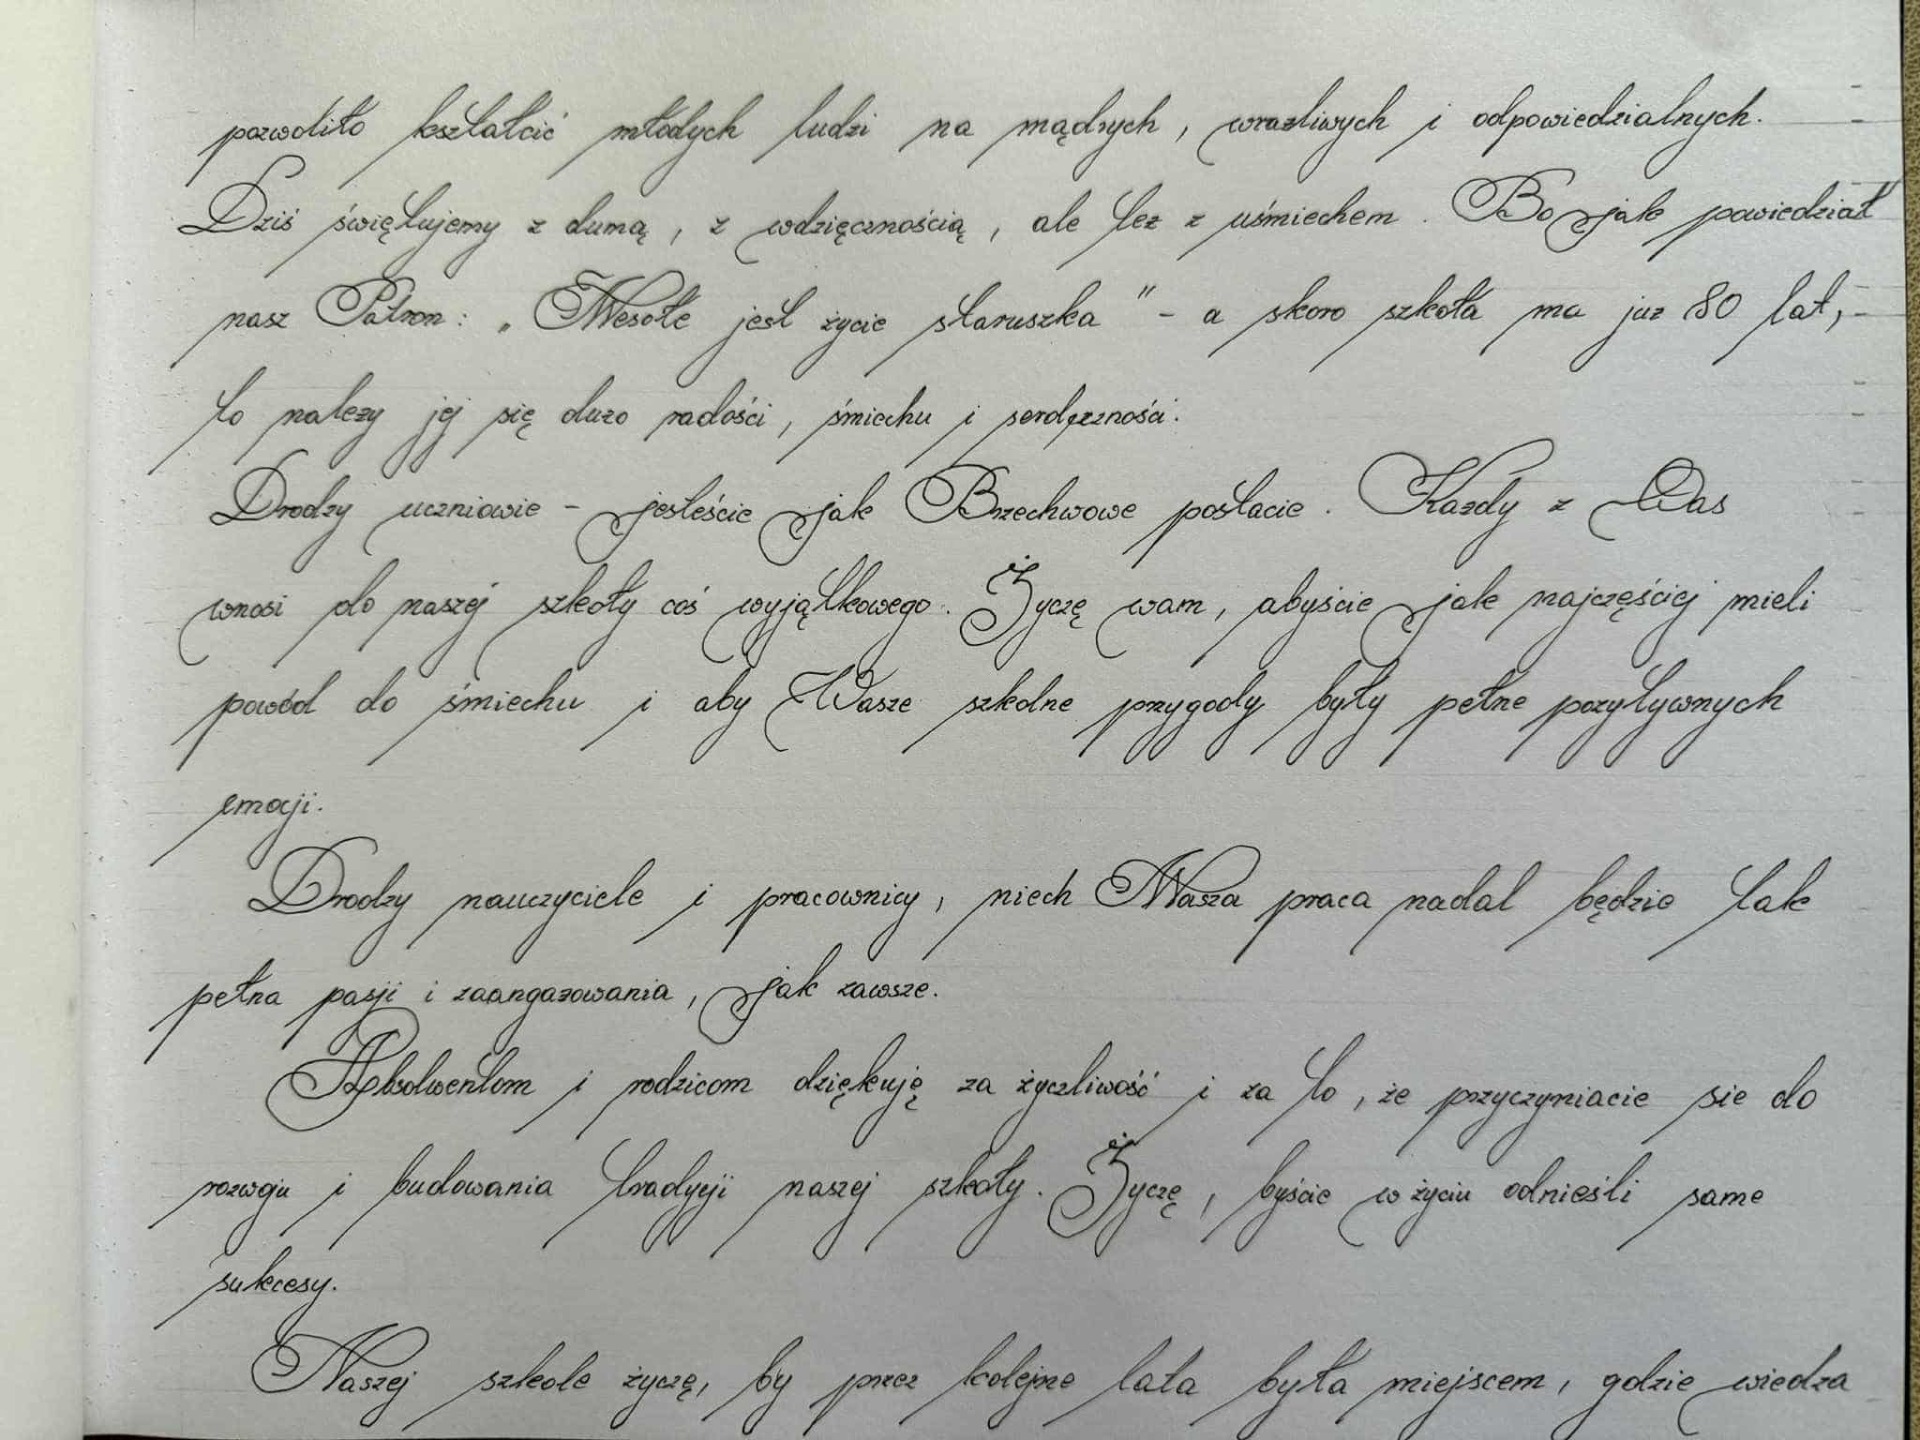 pozwoliło kształcić młodych ludzi na mądrych, wrażliwych i odpowiedzialnych.
Dziś świętujemy z dumą, z wdzięcznością, ale też z uśmiechem. Bo jak powiedział
nasz Patron: „Wesołe jest życie staruszka" - a skoro szkoła ma już 80 lat,
to należy jej się dużo radości, śmiechu i serdeczności.
Drodzy uczniowie - jesteście jak Brzechwowe postacie. Każdy z Was
wnosi do naszej szkoły coś wyjątkowego. Życzę wam, abyście jak najczęściej mieli
powód do śmiechu i aby Wasze szkolne przygody były pełne pozytywnych
emocji.
Drodzy nauczyciele i pracownicy, niech Wasza praca nadal będzie tak
pełna pasji i zaangażowania, jak zawsze.
Absolwentom i rodzicom dziękuję za życzliwość i za to, że przyczyniacie sie do
rozwoju i budowania tradycji naszej szkoły. Życzę, byście w życiu odnieśli same
sukcesy.
Naszej szkole życzę, by przez kolejne lata była miejscem, gdzie wiedza